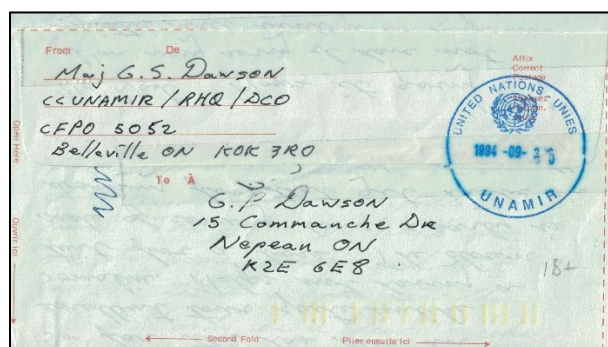 From De
Maj G. S. Dawson
CCUNAMIR / RHQ / DCO
CFPO 5052
Belleville ON K0K 3R0
Affix
Correct
Postage
UNITED NATIONS UNIES
1994 -09-
UNAMIR
Open Here
Ouvrir ici
To À
G.P Dawson
15 Commanche Dr
Nepean ON
K2E 6E8
18+
Second Fold Plier ensuite ici